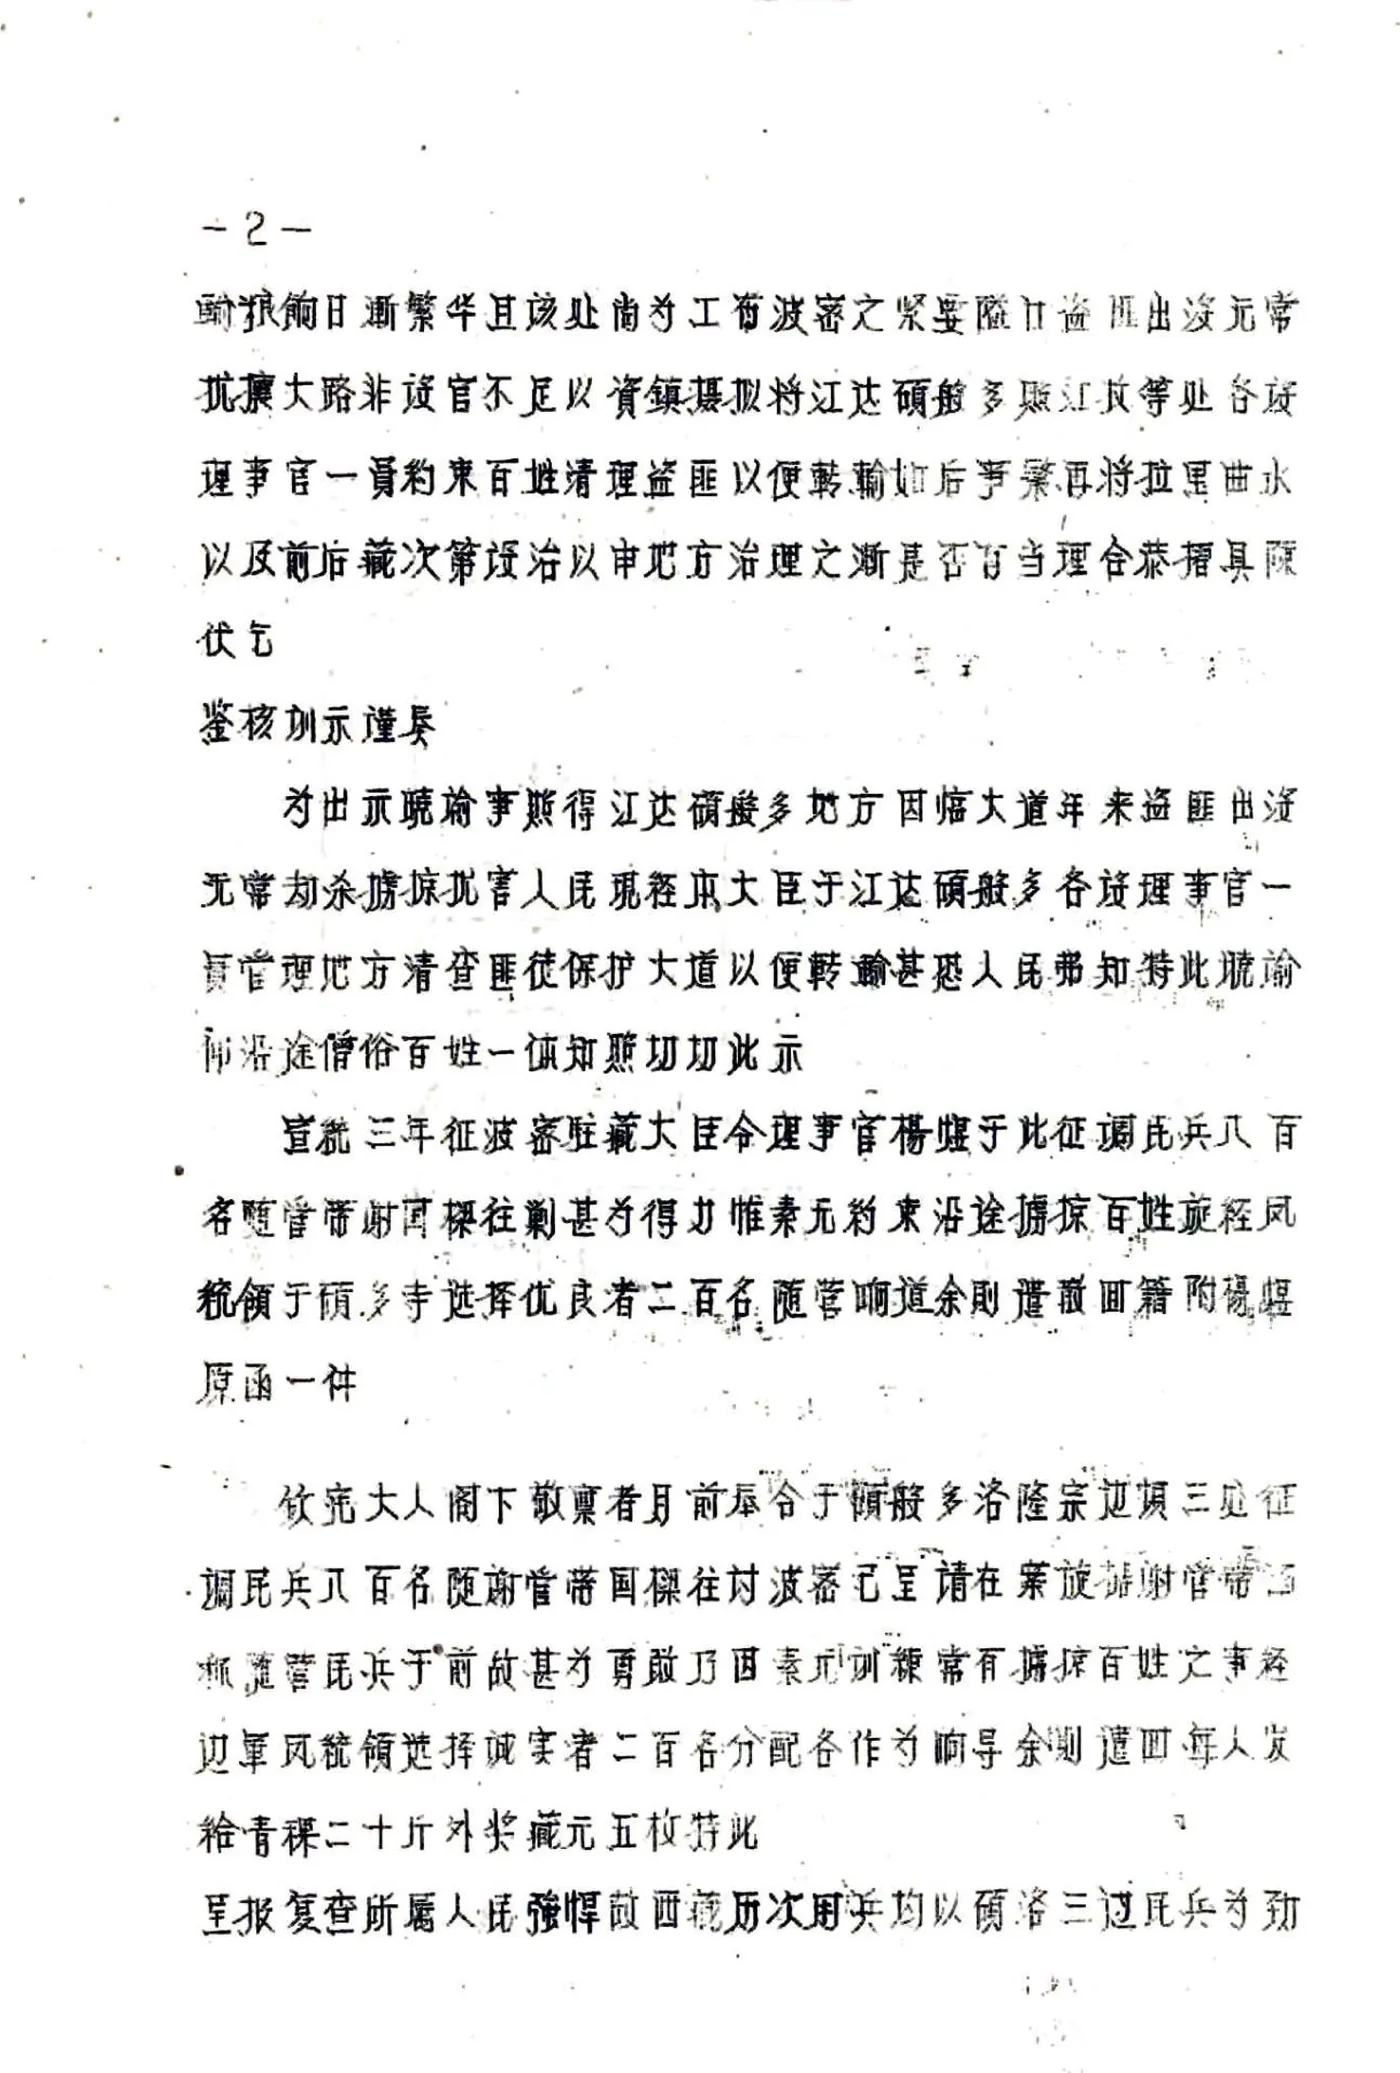 -2-
输粮饷日渐繁华且该处尚为工布波密之紧要隘口盗匪出没无常
扰攘大路非设官不足以資鎮摄拟将江达碩般多照江孜等处各设
理事官一員约束百姓清理盗匪以便转输如后事繁再将拉里曲水
以及前后藏次第设治以申地方治理之渐是否有当理合恭摺具陳
伏乞
鉴核训示谨奏
为出示曉谕事照得江达碩般多地方因临大道年来盗匪出没
无常劫杀掳掠扰害人民現经本大臣于江达碩般多各设理事官一
員管理地方清查匪徒保护大道以便转输甚恐人民弗知特此曉谕
仰沿途僧俗百姓一体知照切切此示
宣统三年征波密駐藏大臣令理事官楊煜于此征调民兵八百
名随管带谢国樑往剿甚为得力惟素无约束沿途掳掠百姓旋经凤
统領于碩多寺选择优良者二百名随营响道余則遣散回籍附楊煜
原函一件
钦宪大人阁下敬禀者月前奉令于碩般多洛隆宗边坝三处征
调民兵八百名随謝管带国樑往讨波密已呈请在案旋据謝管带
称随营民兵于前敌甚为勇敢乃因素无训練常有掳掠百姓之事经
边軍凤统領选择诚实者二百名分配各作为响导余則遣回每人发
给青稞二十斤外奖藏元五枚特此
呈报复查所属人民強悍故西藏历次用兵均以碩洛三边民兵为劲